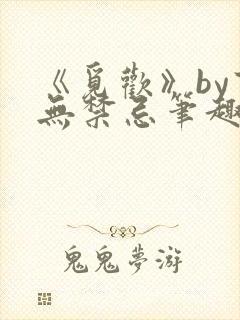 《覓歡》by
無禁忌筆趣
鬼鬼夢游